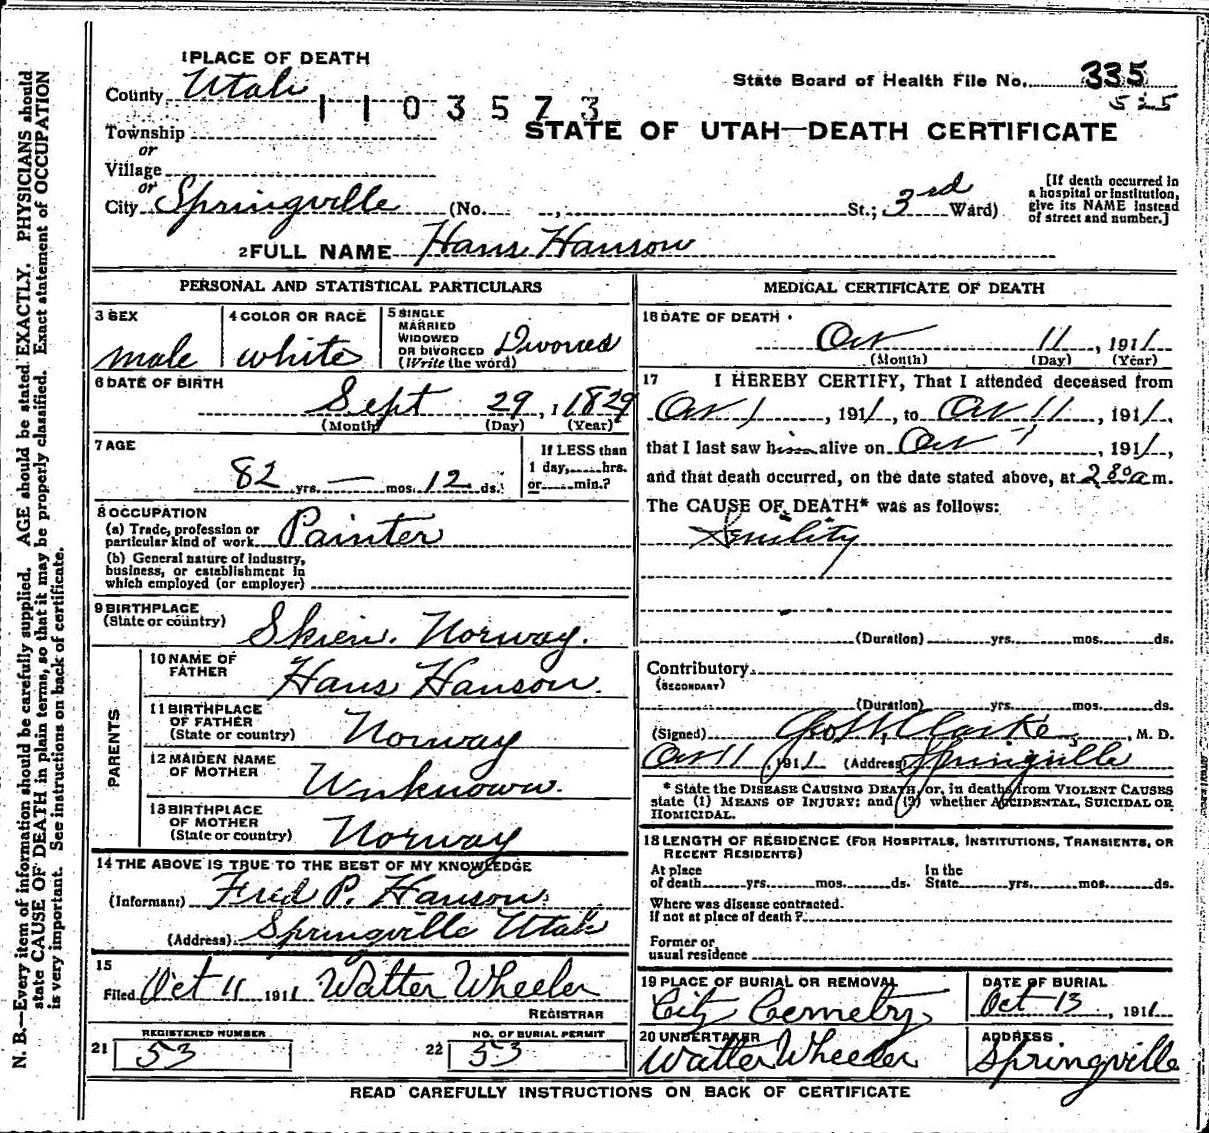 N. B.—Every item of information should be carefully supplied. AGE should be stated EXACTLY. PHYSICIANS should
state CAUSE OF DEATH in plain terms, so that it may be properly classified. Exact statement of OCCUPATION
is very important. See instructions on back of certificate.
1 PLACE OF DEATH
County Utah
1103573
State Board of Health File No. 335
525
STATE OF UTAH—DEATH CERTIFICATE
Township
or
Village
or
City Springville (No. , St.; 3rd Ward)
[If death occurred in
a hospital or institution,
give its NAME instead
of street and number.]
2 FULL NAME Hans Hanson
PERSONAL AND STATISTICAL PARTICULARS
3 SEX
male
4 COLOR OR RACE
white
5 SINGLE
MARRIED
WIDOWED
OR DIVORCED
(Write the word)
Divorced
6 DATE OF BIRTH
Sept 29, 1829
(Month) (Day) (Year)
7 AGE
82 yrs. — mos. 12 ds.
If LESS than
1 day, hrs.
or min.?
8 OCCUPATION
(a) Trade, profession or
particular kind of work Painter
(b) General nature of industry,
business, or establishment in
which employed (or employer)
9 BIRTHPLACE
(State or country) Skien. Norway.
PARENTS
10 NAME OF
FATHER Hans Hanson.
11 BIRTHPLACE
OF FATHER
(State or country) Norway
12 MAIDEN NAME
OF MOTHER Unknown.
13 BIRTHPLACE
OF MOTHER
(State or country) Norway
14 THE ABOVE IS TRUE TO THE BEST OF MY KNOWLEDGE
(Informant) Fred P. Hanson.
(Address) Springville Utah
15
Filed Oct 11 1911 Walter Wheeler
REGISTRAR
21 REGISTERED NUMBER
53
22 NO. OF BURIAL PERMIT
53
MEDICAL CERTIFICATE OF DEATH
16 DATE OF DEATH
Oct 11, 1911
(Month) (Day) (Year)
17 I HEREBY CERTIFY, That I attended deceased from
Oct 1, 1911, to Oct 11, 1911,
that I last saw him alive on Oct , 1911,
and that death occurred, on the date stated above, at 2 30 a m.
The CAUSE OF DEATH* was as follows:
Senility
(Duration) yrs. mos. ds.
Contributory
(SECONDARY)
(Duration) yrs. mos. ds.
(Signed) Geo Clarke, M. D.
Oct 11, 1911 (Address) Springville
* State the DISEASE CAUSING DEATH, or, in deaths from VIOLENT CAUSES
state (1) MEANS OF INJURY; and (2) whether ACCIDENTAL, SUICIDAL OR
HOMICIDAL.
18 LENGTH OF RESIDENCE (FOR HOSPITALS, INSTITUTIONS, TRANSIENTS, OR
RECENT RESIDENTS)
At place
of death yrs. mos. ds.
In the
State yrs. mos. ds.
Where was disease contracted.
if not at place of death?
Former or
usual residence
19 PLACE OF BURIAL OR REMOVAL
City Cemetry
DATE OF BURIAL
Oct 13, 1911
20 UNDERTAKER
Walter Wheeler
ADDRESS
Springville
READ CAREFULLY INSTRUCTIONS ON BACK OF CERTIFICATE